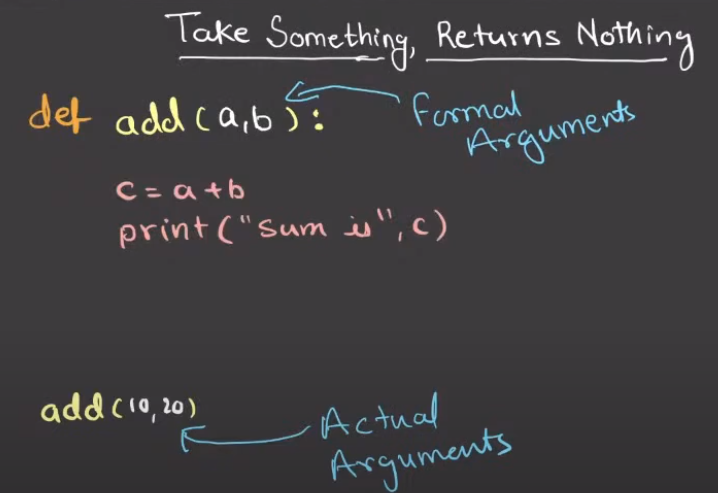 Take Something, Returns Nothing
def add(a,b): Formal
Arguments
c = a + b
print("sum is", c)
add(10,20)
Actual
Arguments